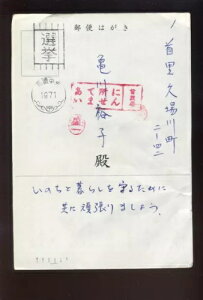 郵便はがき
選挙
1971
首里久場川町
二ー四二
亀川裕子殿
あて所に
いません
いのちと暮らしを守るために
共に頑張りましょう。